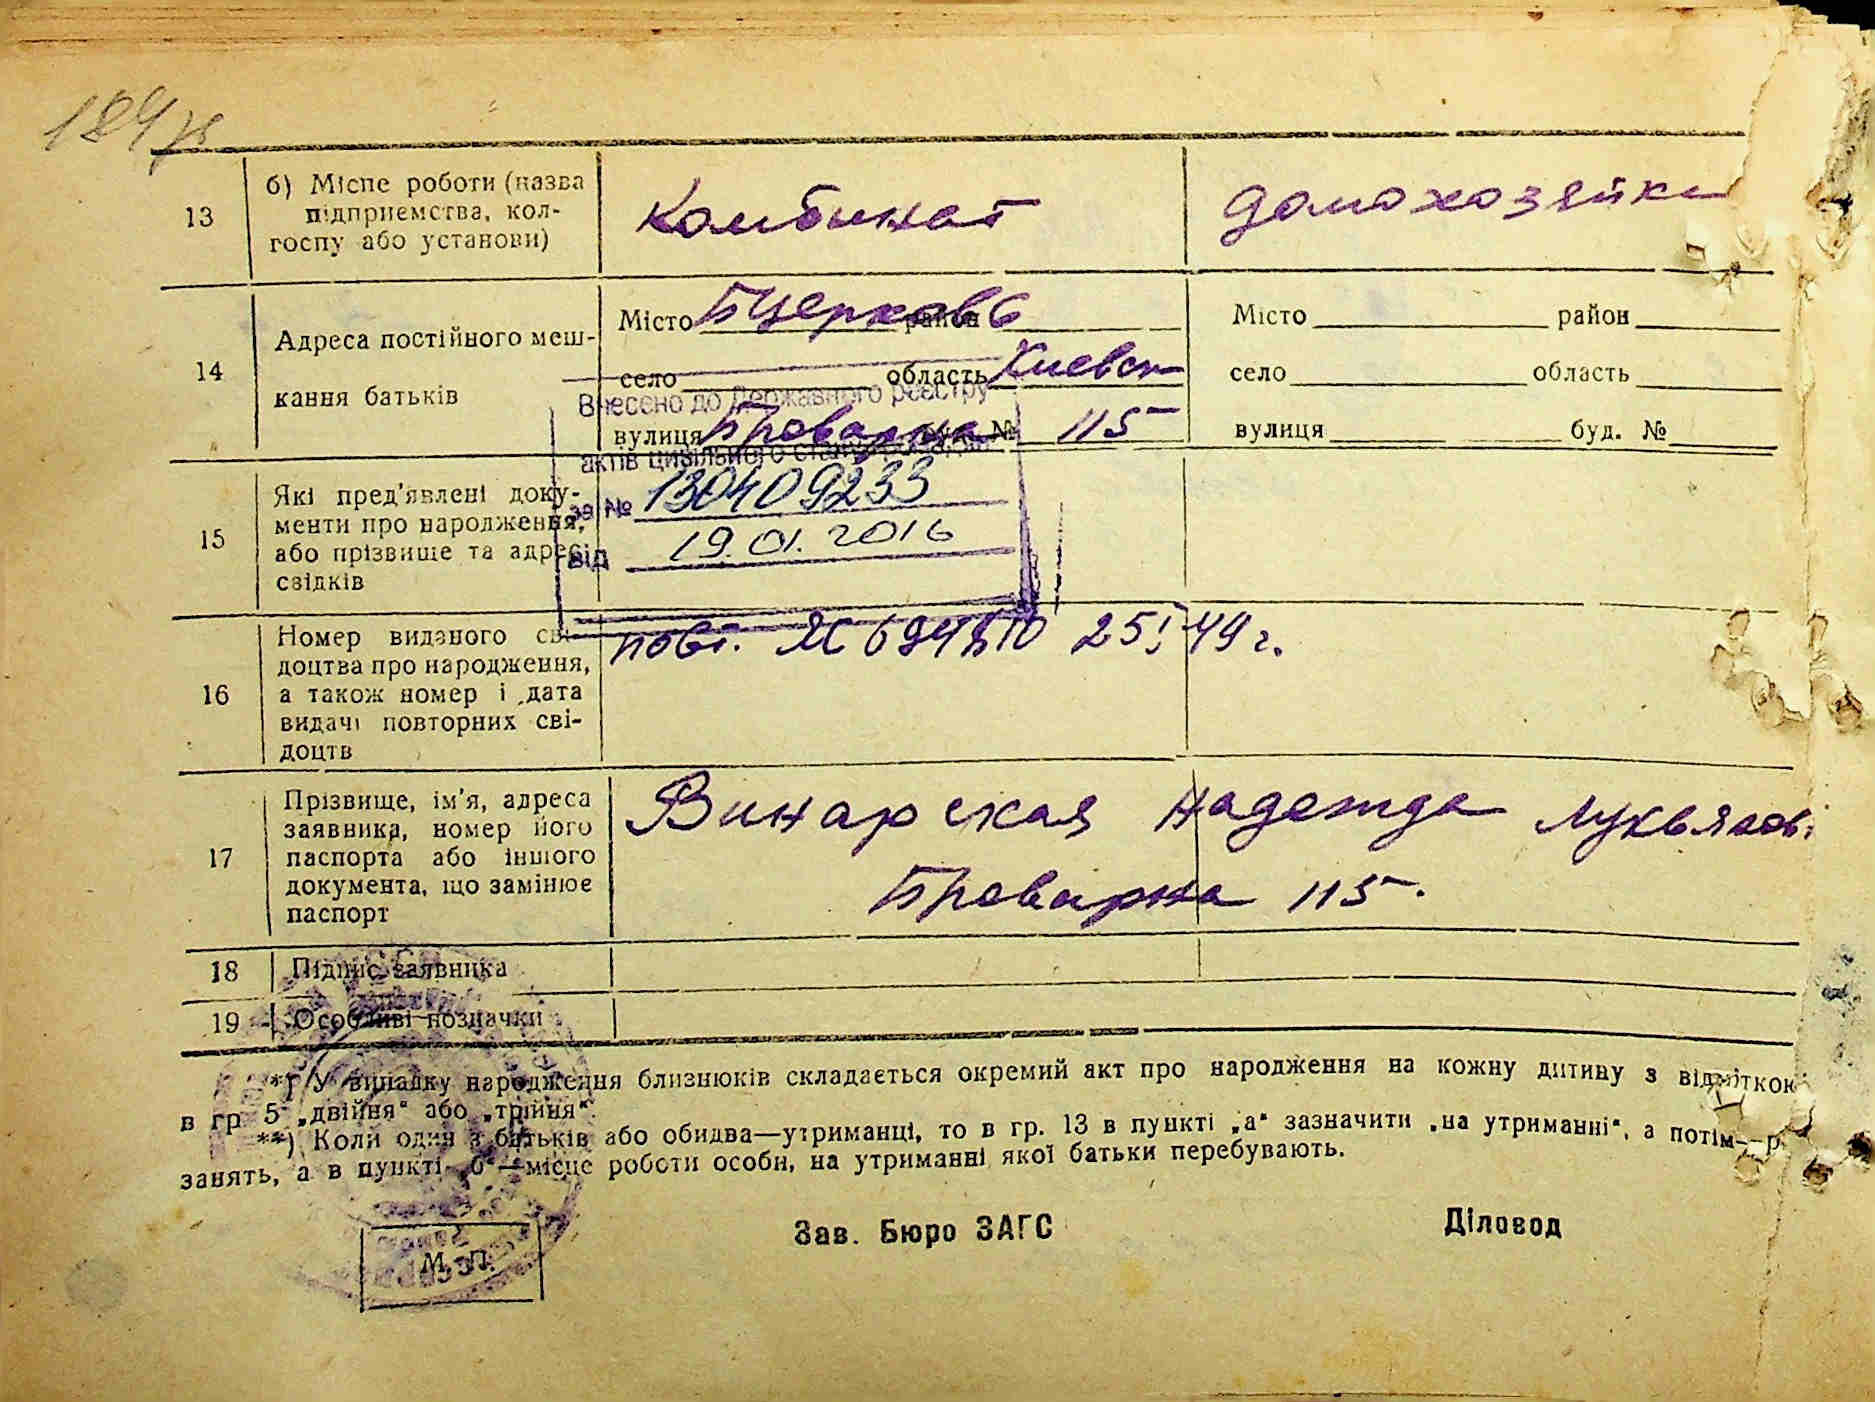 184
13
б) Місце роботи (назва
підприємства, кол-
госпу або установи)
Комбинат
домохозяйка
14
Адреса постійного меш-
кання батьків
Місто Б Церковь район
село область Киевск
вулиця Броварна буд. № 115
Місто район
село область
вулиця буд. №
Внесено до Державного реєстру
актів цивільного стану громадян
за № 130409233
від 19.01.2016
15
Які пред'явлені доку-
менти про народження,
або прізвище та адреса
свідків
16
Номер виданого сві-
доцтва про народження,
а також номер і дата
видачі повторних сві-
доцтв
повт. 25 I 49 г.
17
Прізвище, ім'я, адреса
заявника, номер його
паспорта або іншого
документа, що замінює
паспорт
Винарская Надежда
Броварна 115.
18
Підпис заявника
19
Особливі позначки
*) У випадку народження близнюків складається окремий акт про народження на кожну дитину з відміткою
в гр 5 „двійня“ або „трійня“.
**) Коли один з батьків або обидва—утриманці, то в гр. 13 в пункті „а“ зазначити „на утриманні“, а потім—р
занять, а в пункті „б“—місце роботи особи, на утриманні якої батьки перебувають.
Зав. Бюро ЗАГС
Діловод
М. П.